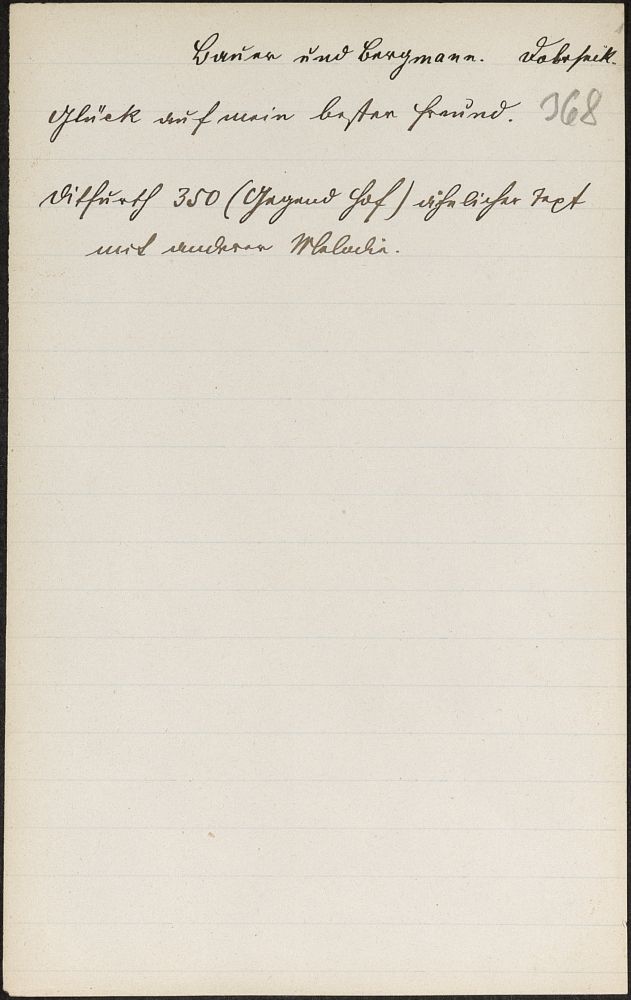 Bauer und Bergmann. Dobrseik.
Glück auf mein bester Freund. 368
Ditfurth 350 (Gegend Hof) ähnlicher Text
mit anderer Melodie.